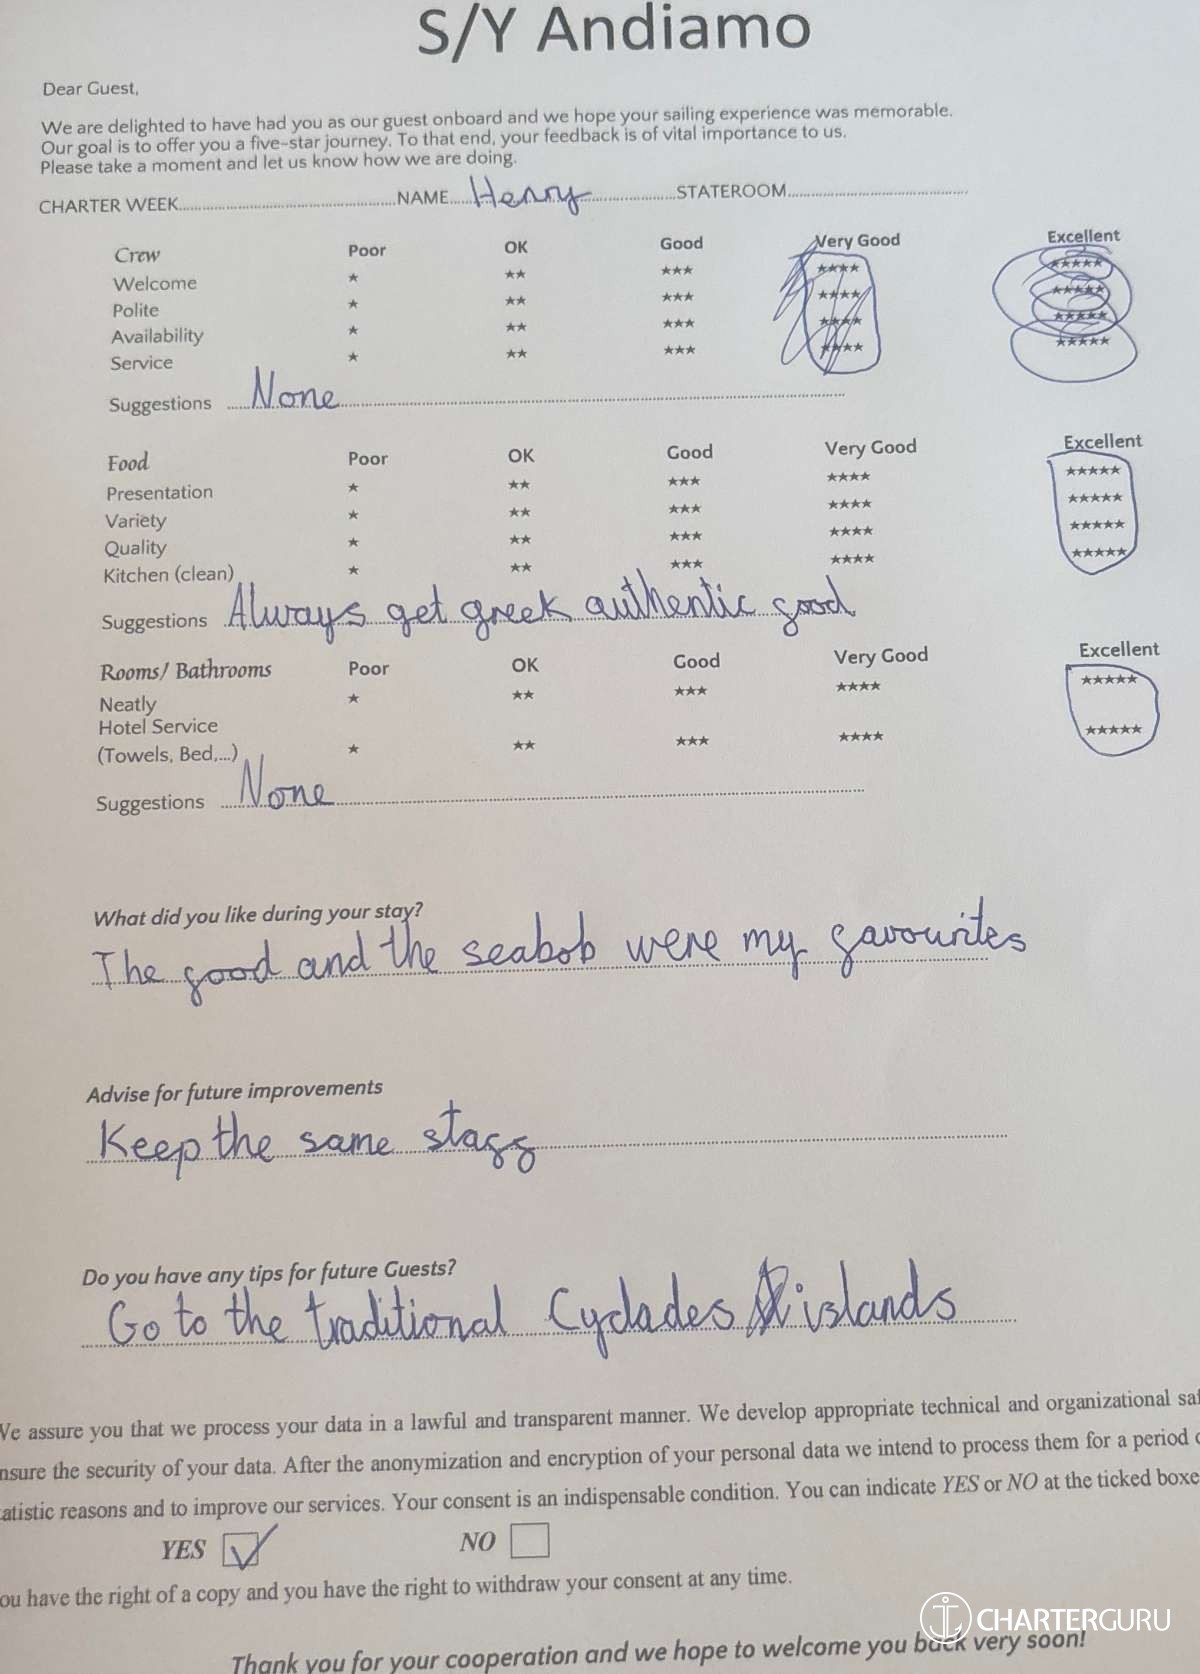 S/Y Andiamo
Dear Guest,
We are delighted to have had you as our guest onboard and we hope your sailing experience was memorable.
Our goal is to offer you a five-star journey. To that end, your feedback is of vital importance to us.
Please take a moment and let us know how we are doing.
CHARTER WEEK NAME Henry STATEROOM
Crew Poor OK Good Very Good Excellent
Welcome ★ ★★ ★★★ ★★★★ ★★★★★
Polite ★ ★★ ★★★ ★★★★ ★★★★★
Availability ★ ★★ ★★★ ★★★★ ★★★★★
Service ★ ★★ ★★★ ★★★★ ★★★★★
Suggestions None
Food Poor OK Good Very Good Excellent
Presentation ★ ★★ ★★★ ★★★★ ★★★★★
Variety ★ ★★ ★★★ ★★★★ ★★★★★
Quality ★ ★★ ★★★ ★★★★ ★★★★★
Kitchen (clean) ★ ★★ ★★★ ★★★★ ★★★★★
Suggestions Always get greek authentic food
Rooms/ Bathrooms Poor OK Good Very Good Excellent
Neatly ★ ★★ ★★★ ★★★★ ★★★★★
Hotel Service
(Towels, Bed,...) ★ ★★ ★★★ ★★★★ ★★★★★
Suggestions None
What did you like during your stay?
The food and the seabob were my favourites
Advise for future improvements
Keep the same staff
Do you have any tips for future Guests?
Go to the traditional Cyclades islands
We assure you that we process your data in a lawful and transparent manner. We develop appropriate technical and organizational saf
nsure the security of your data. After the anonymization and encryption of your personal data we intend to process them for a period o
atistic reasons and to improve our services. Your consent is an indispensable condition. You can indicate YES or NO at the ticked boxe
YES NO
ou have the right of a copy and you have the right to withdraw your consent at any time.
CHARTERGURU
Thank you for your cooperation and we hope to welcome you back very soon!